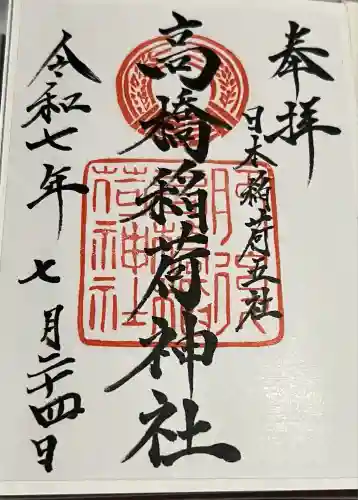 奉拝
日本稲荷五社
高橋稲荷神社
令和七年 七月二十四日